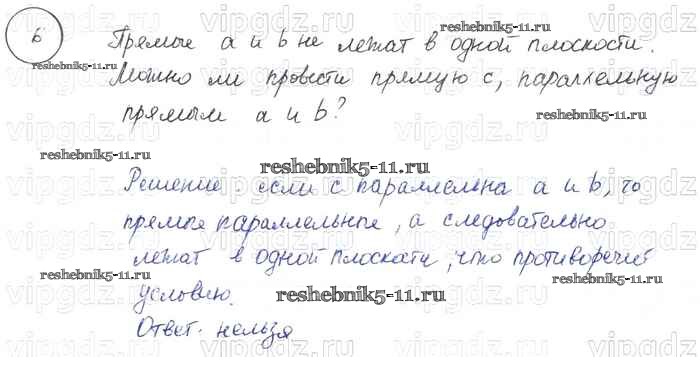 6 Прямые a и b не лежат в одной плоскости.
Можно ли провести прямую c, параллельную
прямым a и b?
Решение. если c параллельна a и b, то
прямые параллельные, а следовательно
лежат в одной плоскати, что противоречит
условию.
Ответ. нельзя
reshebnik5-11.ru
reshebnik5-11.ru
reshebnik5-11.ru
reshebnik5-11.ru
reshebnik5-11.ru
reshebnik5-11.ru
reshebnik5-11.ru
reshebnik5-11.ru
vipgdz.ru